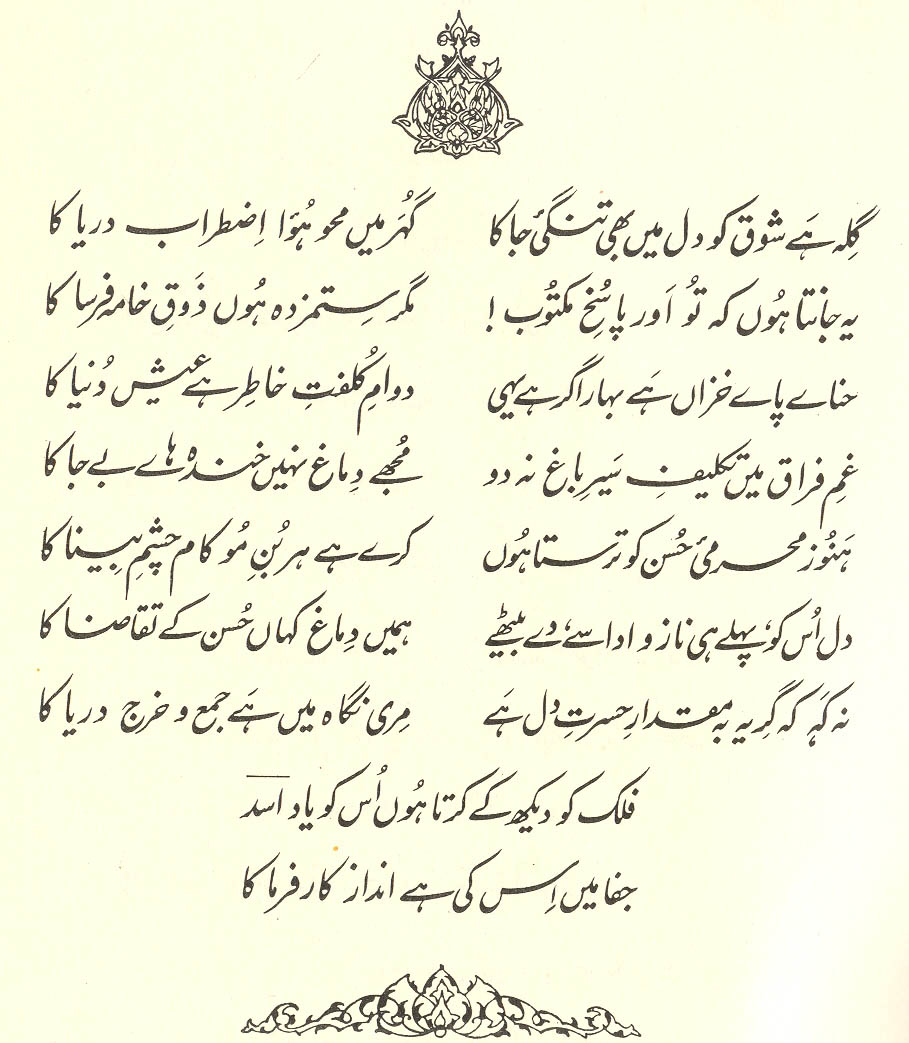 گِلہ ہَے شوق کو دل میں بھی تنگیٔ جا کا گُہَر میں محو ہُؤا اِضطراب دریا کا
یہ جانتا ہُوں کہ تُو اَور پاسُخِ مکتُوب ! مگر ستمزدہ ہُوں ذَوقِ خامہ فرسا کا
حناے پاے خزاں ہَے بہار اگر ہے یہی دوامِ کُلفتِ خاطِر ہے عیش دُنیا کا
غمِ فراق میں تکلیفِ سَیرِ باغ نہ دو مُجھے دِماغ نہیں خندہ ہاے بے جا کا
ہَنُوز محرمیٔ حُسن کو ترستا ہُوں کرے ہے ہر بُنِ مُو کام چشمِ بِینا کا
دل اُس کو، پہلے ہی ناز و ادا سے، دے بیٹھے ہمیں دِماغ کہاں حُسن کے تقاضا کا
نہ کَہہ کہ گِریہ بہ مقدارِ حسرتِ دل ہَے مِری نگاہ میں ہَے جمع و خرج دریا کا
فلک کو دیکھ کے کرتا ہُوں اُس کو یاد اسد
جفا میں اِس کی ہے انداز کارفرما کا